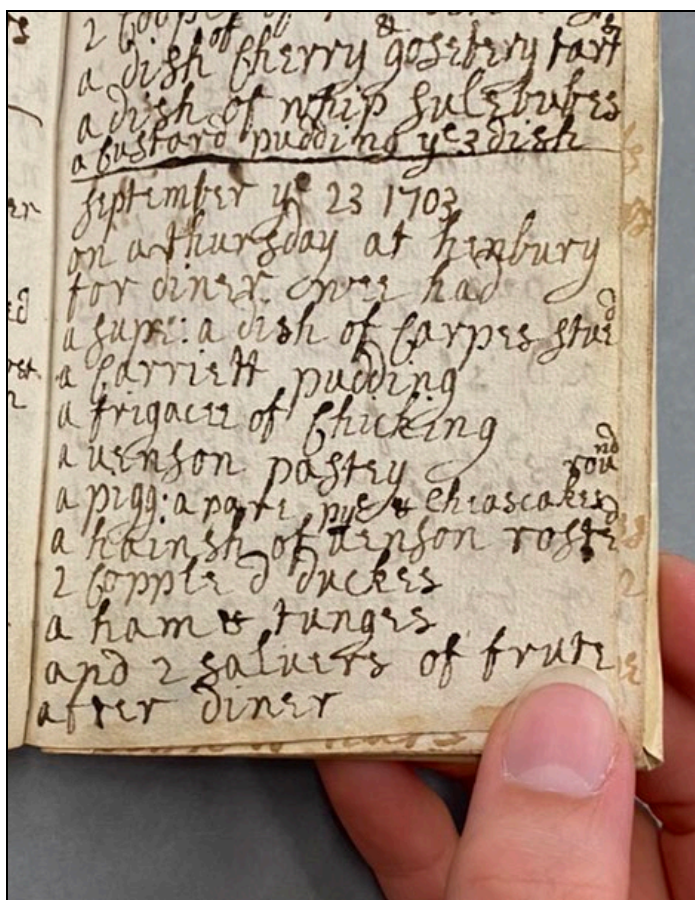 2 Copple of
&
a dish Cherry goosebery tart
a dish of whip sulebubes
a Custard pudding ye 3 dish
september ye 23 1703
on a thursday at henbury
for diner wee had
a supe: a dish of Carpes stued
a Carriett pudding
a frigacee of Chicking
a uenson pastey
round
a pigg: a pare pye & Cheascakes
a hainsh of uenson rosted
2 Copple d duckes
a ham & tunges
and 2 saluers of frute
after diner